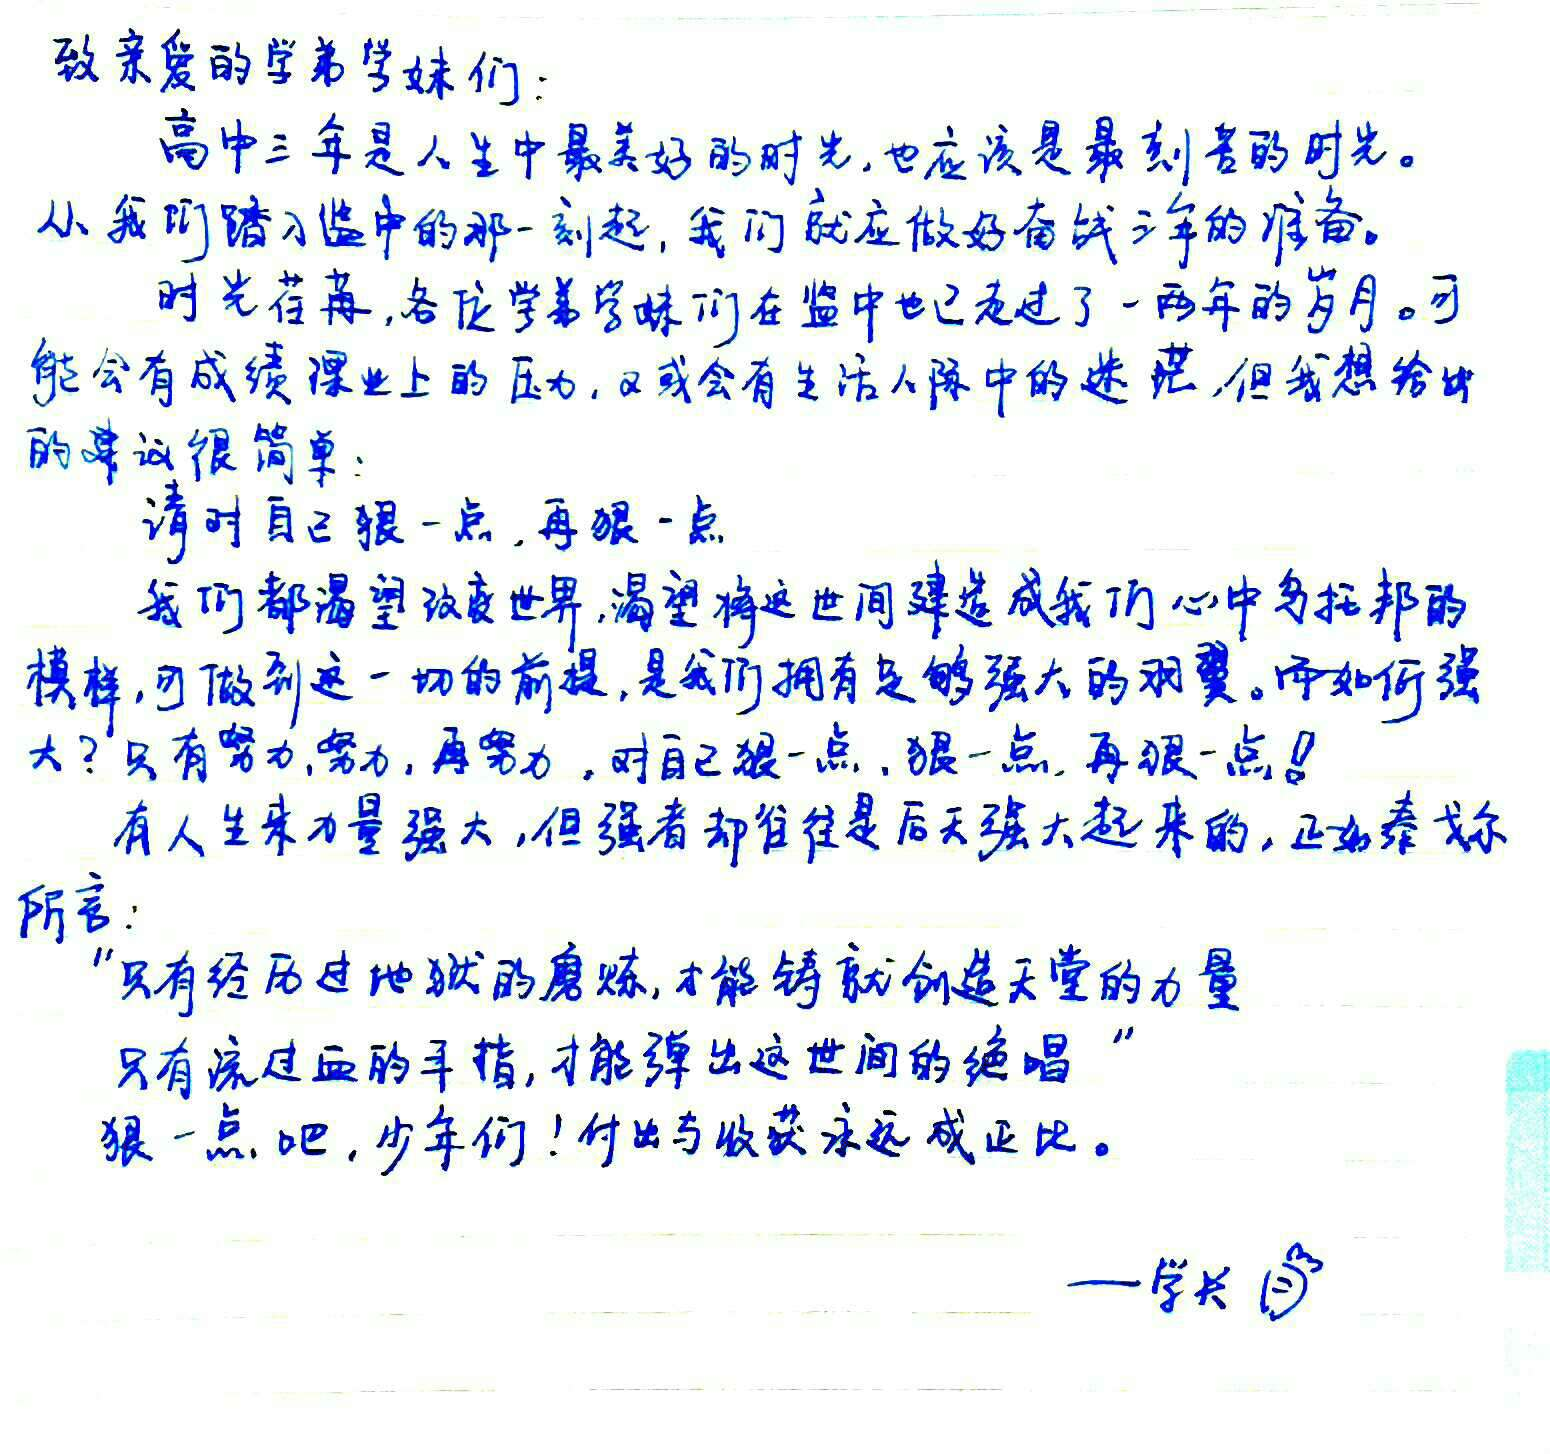 致亲爱的学弟学妹们：
高中三年是人生中最美好的时光，也应该是最刻苦的时光。
从我们踏入盐中的那一刻起，我们就应做好奋战三年的准备。
时光荏苒，各位学弟学妹们在盐中也已走过了一两年的岁月。可
能会有成绩课业上的压力，又或会有生活人际中的迷茫，但我想给出
的建议很简单：
请对自己狠一点，再狠一点
我们都渴望改变世界，渴望将这世间建造成我们心中乌托邦的
模样，可做到这一切的前提，是我们拥有足够强大的羽翼。而如何强
大？只有努力，努力，再努力，对自己狠一点，狠一点，再狠一点！
有人生来力量强大，但强者却往往是后天强大起来的，正如泰戈尔
所言：
“只有经历过地狱的磨炼，才能铸就创造天堂的力量
只有流过血的手指，才能弹出这世间的绝唱”
狠一点吧，少年们！付出与收获永远成正比。
——学长